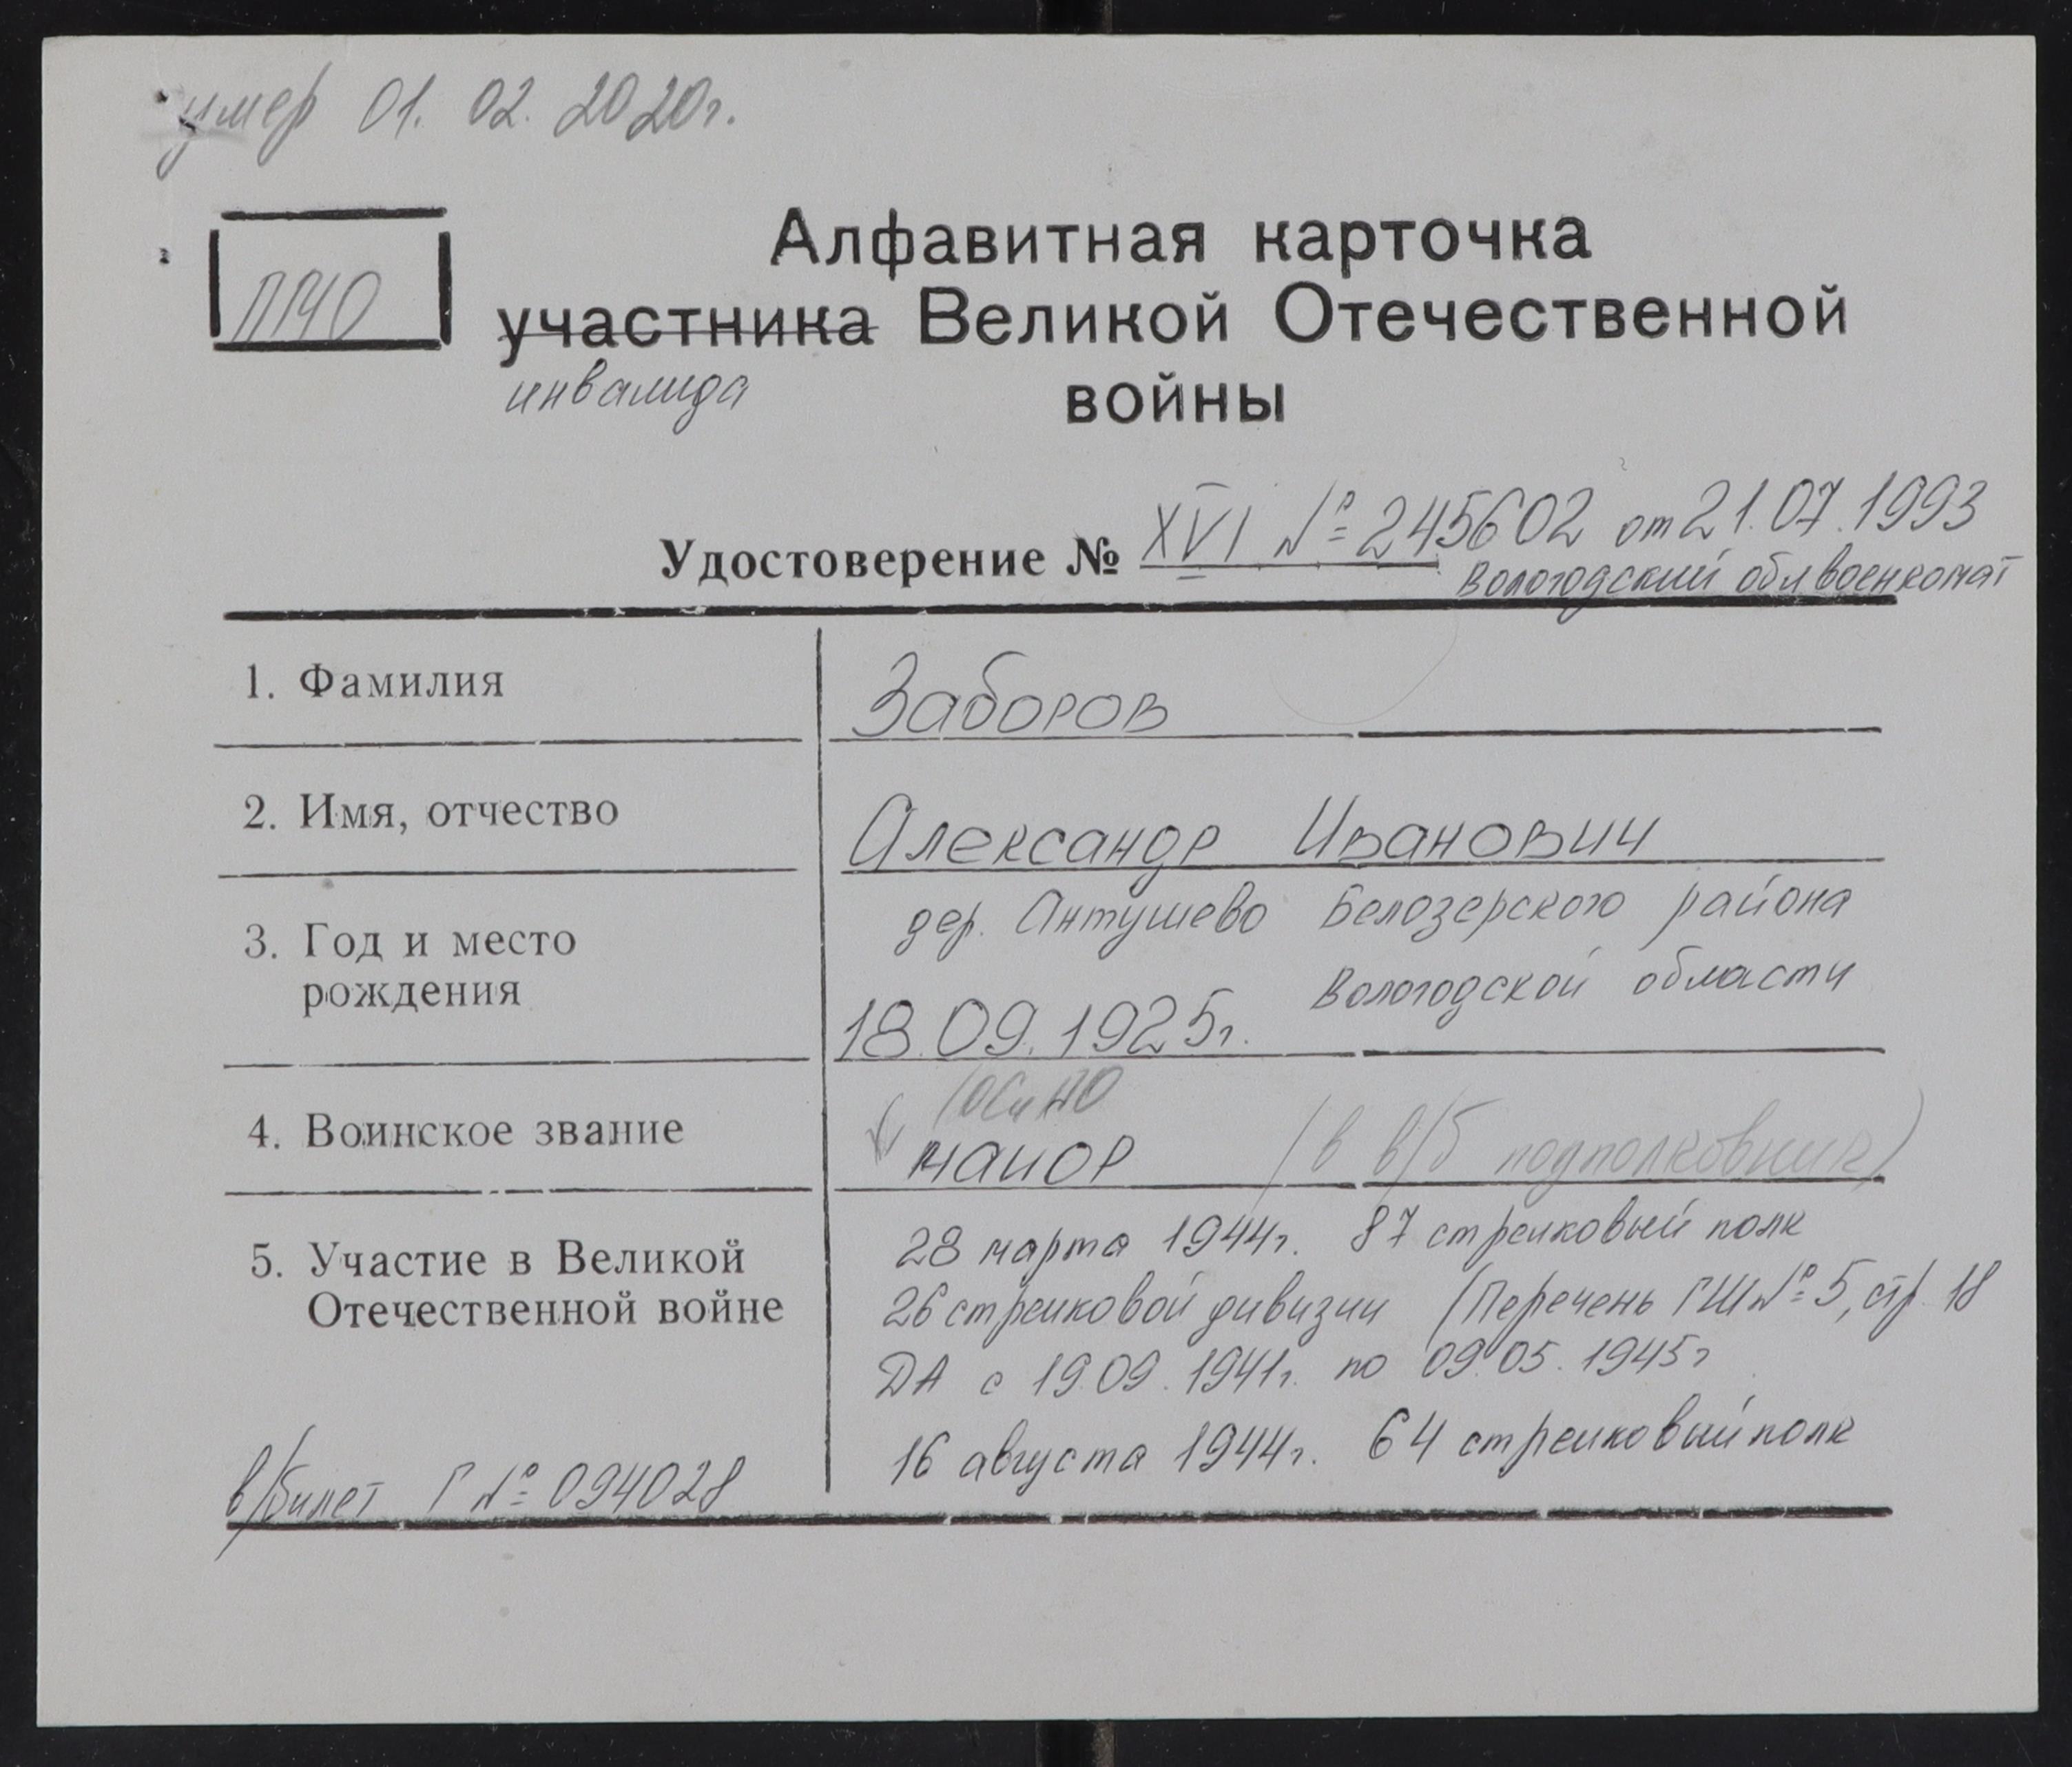 умер 01. 02. 2020г.
Алфавитная карточка
участника Великой Отечественной
инвалида войны
Удостоверение № XVI № 245602 от 21.07.1993
Вологодский облвоенкомат
1. Фамилия Заборов
2. Имя, отчество Александр Иванович
дер. Антушево Белозерского района
3. Год и место Вологодской области
рождения 18.09.1925г.
4. Воинское звание майор (в в/б подполковник)
28 марта 1944г. 87 стрелковый полк
5. Участие в Великой 26 стрелковой дивизии (Перечень ГШ № 5, стр 18
Отечественной войне ДА с 19.09.1941г. по 09.05.1945г
16 августа 1944г. 64 стрелковый полк
в/билет Г № 094028